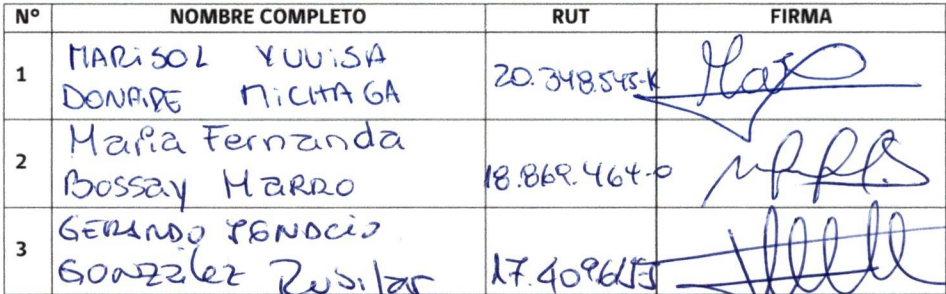 N° NOMBRE COMPLETO RUT FIRMA
1 MARISOL YUVISA
DONAIRE MICHAGA 20.348.545-K
2 Maria Fernanda
Bossay MARRO 18.869.464-0
3 GERARDO IGNACIO
GONZZlez Rubilar 17.409615